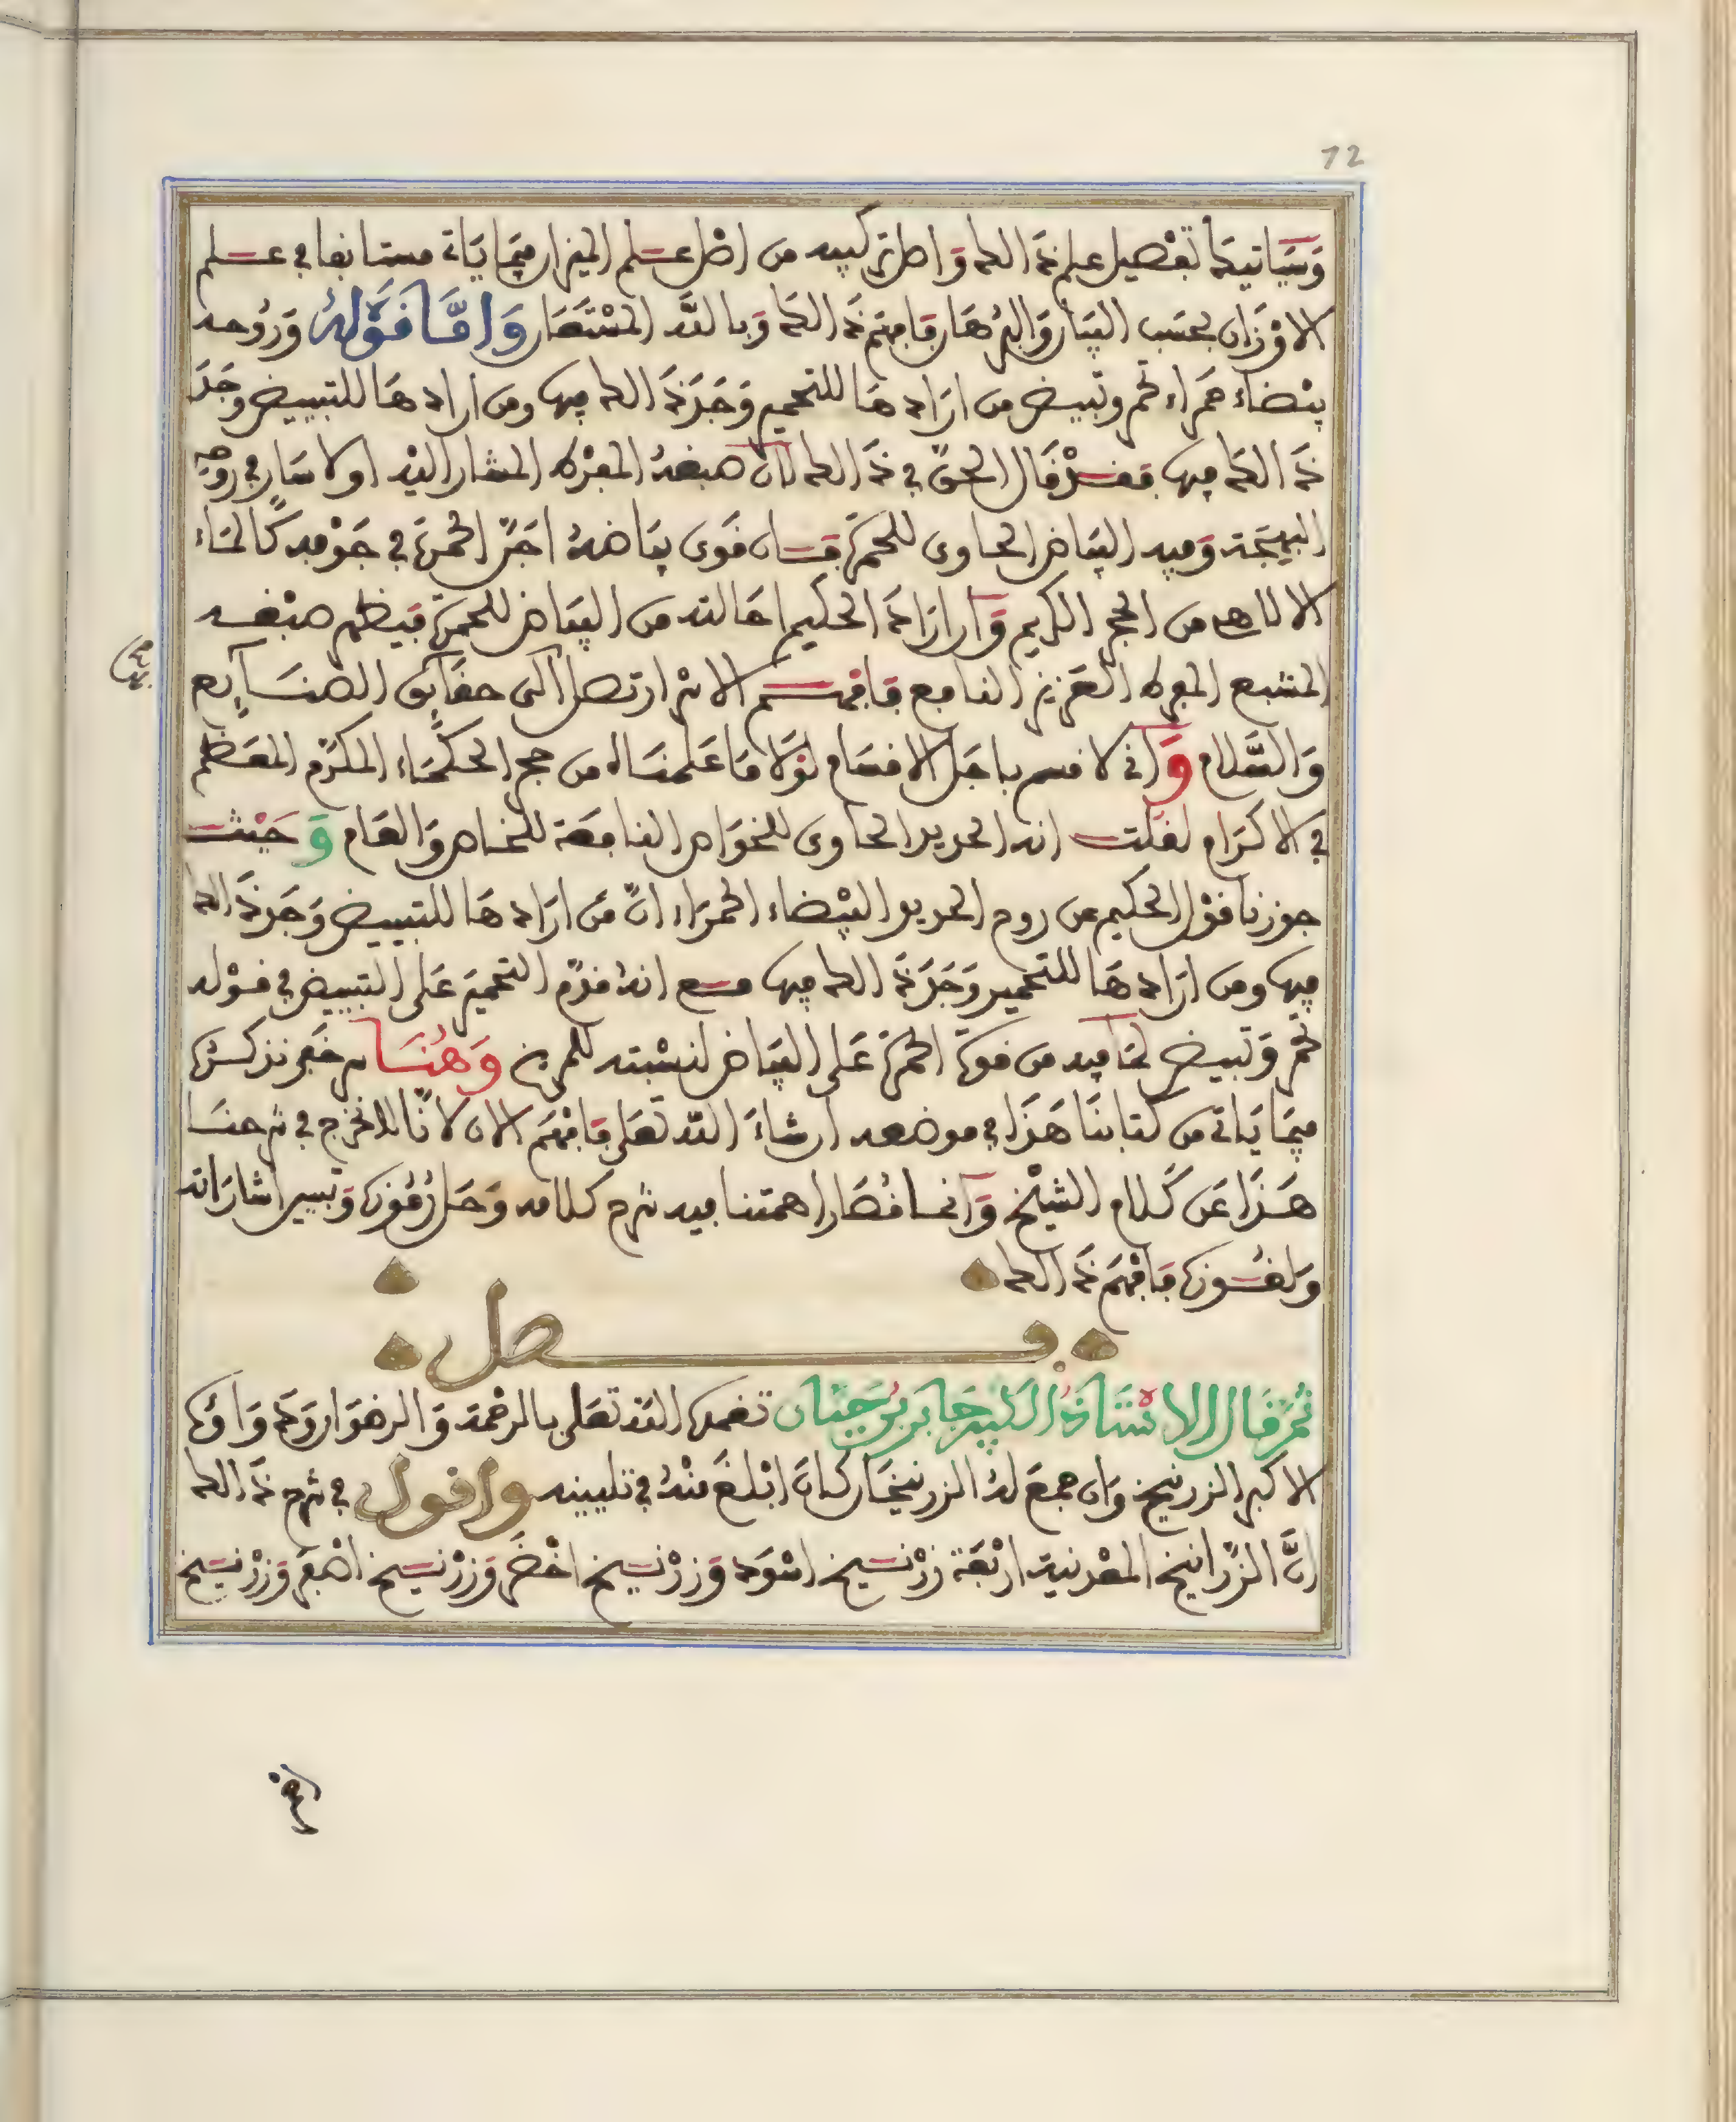 12
وَسَيَاتيكَ تفْصيل علم ذَالك وَاصل تركيبه من اصْل عـلم الميزان فيمَا يَاتي مستانفا في عـلم
الاوْزَان بحسَب البيَان وَالبرْهَان فَافهَم ذَالك وَبالله المسْتعَان وَامَّا قَوْلهُ وَرُوحه
بيْضاء حَمراء تحمر وتبيض من ارَادهَا للتحمير وَجَدَ ذَالك فيها ومن ارادهَا للتبييض وجَدَ
ذَالك فيها فقـدْ قَال الحقّ في ذَالك لانّ صبغهُ المفرد المشار اليْه اولا سَار في روحه
البهيجة وَفيه البيَاض الحاوى للحمرَة فـان قوى بيَاضهُ اجَنّ الحمرَة في جَوْفه كَالمَاء
الالاهى من الحجر الكريم وَان ارَادَ الحكيم احَالته من البيَاض للحمرَة فيظهر صبْغـه
المشبع المفرد العَزيز النافع فَافهـم الامْر ارتصل الى حقَايق الصنَـايع
وَالسَّلام وَاني لاقسم باجَل الاقسَام لوْلا مَا عَلمنَاه من حجر الحكمَاء المكرّم المعَظم
في الاكرَام لقلت انه الحديد الحاوى للخوَاص النافعَة للخاص وَالعَام وَحَيْث
جوزنا قوْل الحكيم عن روح الحديد البيْضاء الحمرَاء انّ مَن ارَادهَا للتبييض وَجَدَ ذَالك
فيها ومن ارَادهَا للتحمير وَجَدَ ذَالك فيها مـع انهُ قدّم التحميرَ عَلى التبييض في قـوْله
تحمر وَتبيض لمَا فيه من قوة الحمرَة عَلى البيَاض لنسْبته للمريخ وَهُنَا سر خَفي نذكـرُهُ
فيمَا يَاتي من كتابنَا هَذَا في موضعه ان شَاءَ الله تعَلى فَافهَم الان لانّا لا نخرج في شرحنَـا
هَـذَا عَن كَلام الشيْخ وَانمـا قصَارا همتنا فيه شرح كلامه وَحَل رُمُوزه وَتيسير اشارَاته
وَلغُـوزه فَافهَم ذَالك
فـصل
ثمّ قَال الاسْتَاذُ الكَبير جَابر بنُ حَيَّان تغمدَه الله تعَلى بالرحْمة وَالرضوَان وَدَوَاؤه
الاكبر الزرنيخ وَان جمعَ لهُ الزرنيخَان كَانَ ابْلغَ منْهُ في تليينه وَاقول في شرح ذَالك
انَّ الزّرانيخ المعْدنية ارْبعَة زرْنـيخ اسْوَد وَزرْنـيخ اخْضَر وَزرْنـيخ اصْفَر وَزرْنـيخ